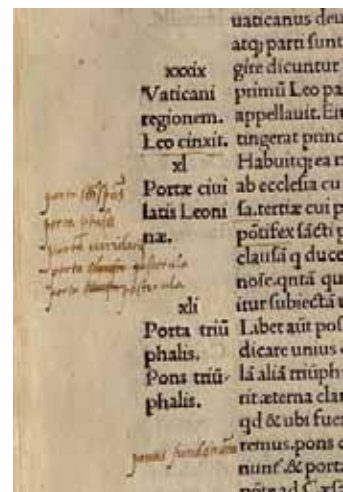 xxxix
Vaticani
regionem.
Leo cinxit.
xl
Portæ ciui
latis Leoni
næ.
xli
Porta triū
phalis.
Pons triū-
phalis.
porta
porta
porta viridaria
porta posterula
porta posterula
uaticanus deu
atq; parti sunt
gire dicuntur
primū Leo pa
appellauit. Eiu
tingerat princ
Habuitq; ea r
ab ecclesia cu
sa. tertiæ cui p
pōtifex sācti p
clausā q duce
nose. qntā qu
itur subiectā u
Libet aūt pos
dicare unius e
lā aliā triūph
rit æterna clau
qd & ubi fuer
remus. pons e
nunt. & port